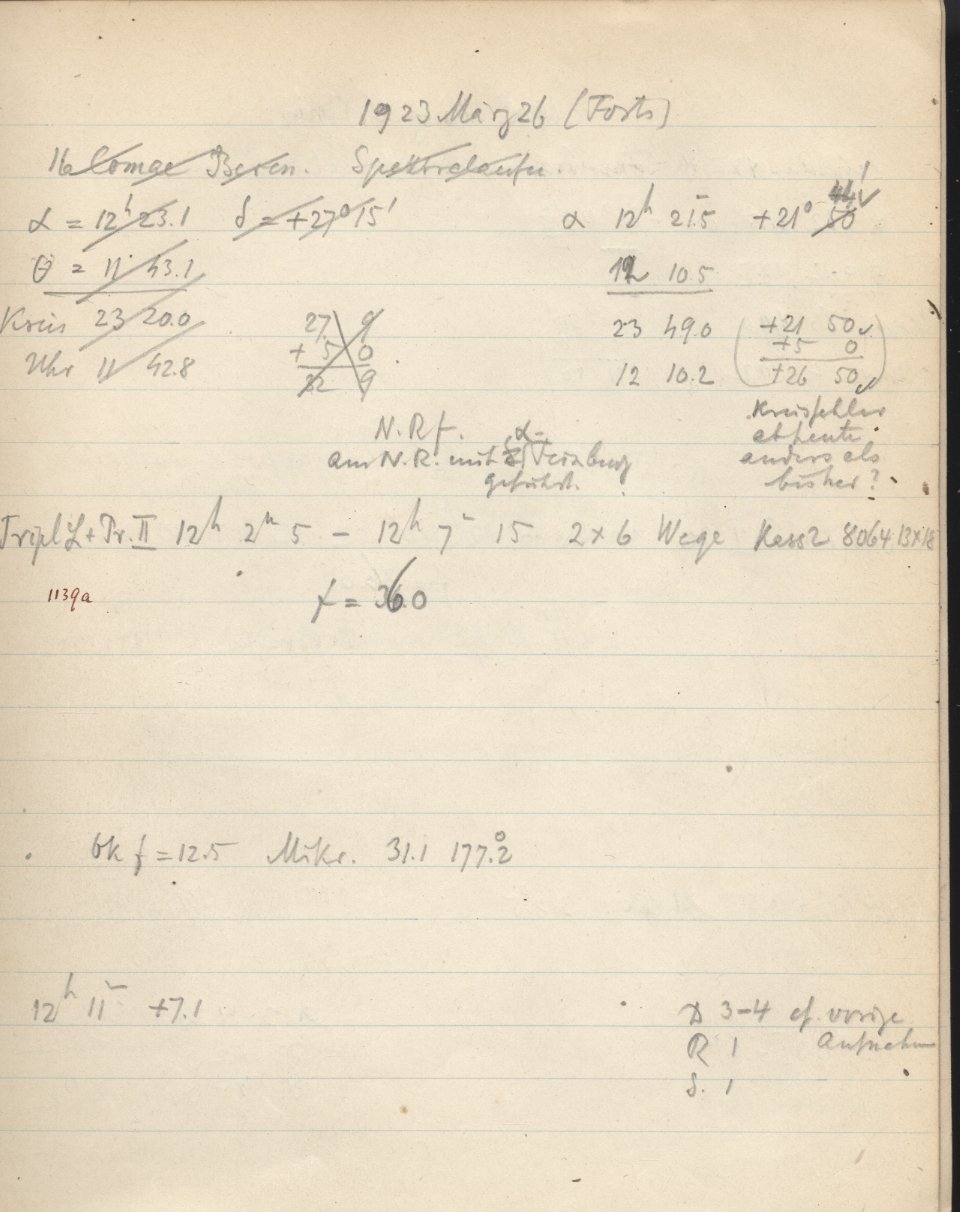 1923 März 26 (Forts)
16a Comae Beren. Spektralaufn.
α = 12h 23.1 δ = +27° 15' α 12h 21.5 +21° 50 44'
θ = 11 43.1 12 10.5
Kreis 23 20.0 27 9 23 49.0 +21 50
+ 5 0 +5 0
Uhr 11 42.8 32 9 12 10.2 +26 50
N.R f. Kreisfehler
α- ab heute
am N.R. mit Feinbewg anders als
geführt. bisher?
Tripl + Pr. II 12h 2m 5 – 12h 7m 15 2×6 Wege Kass 2 8064 13×18
1139a f = 36.0
bk f = 12.5 Mikr. 31.1 177.°2
12h 11m +7.1 D 3–4 cf. vorige
R 1 Aufnahm
S. 1